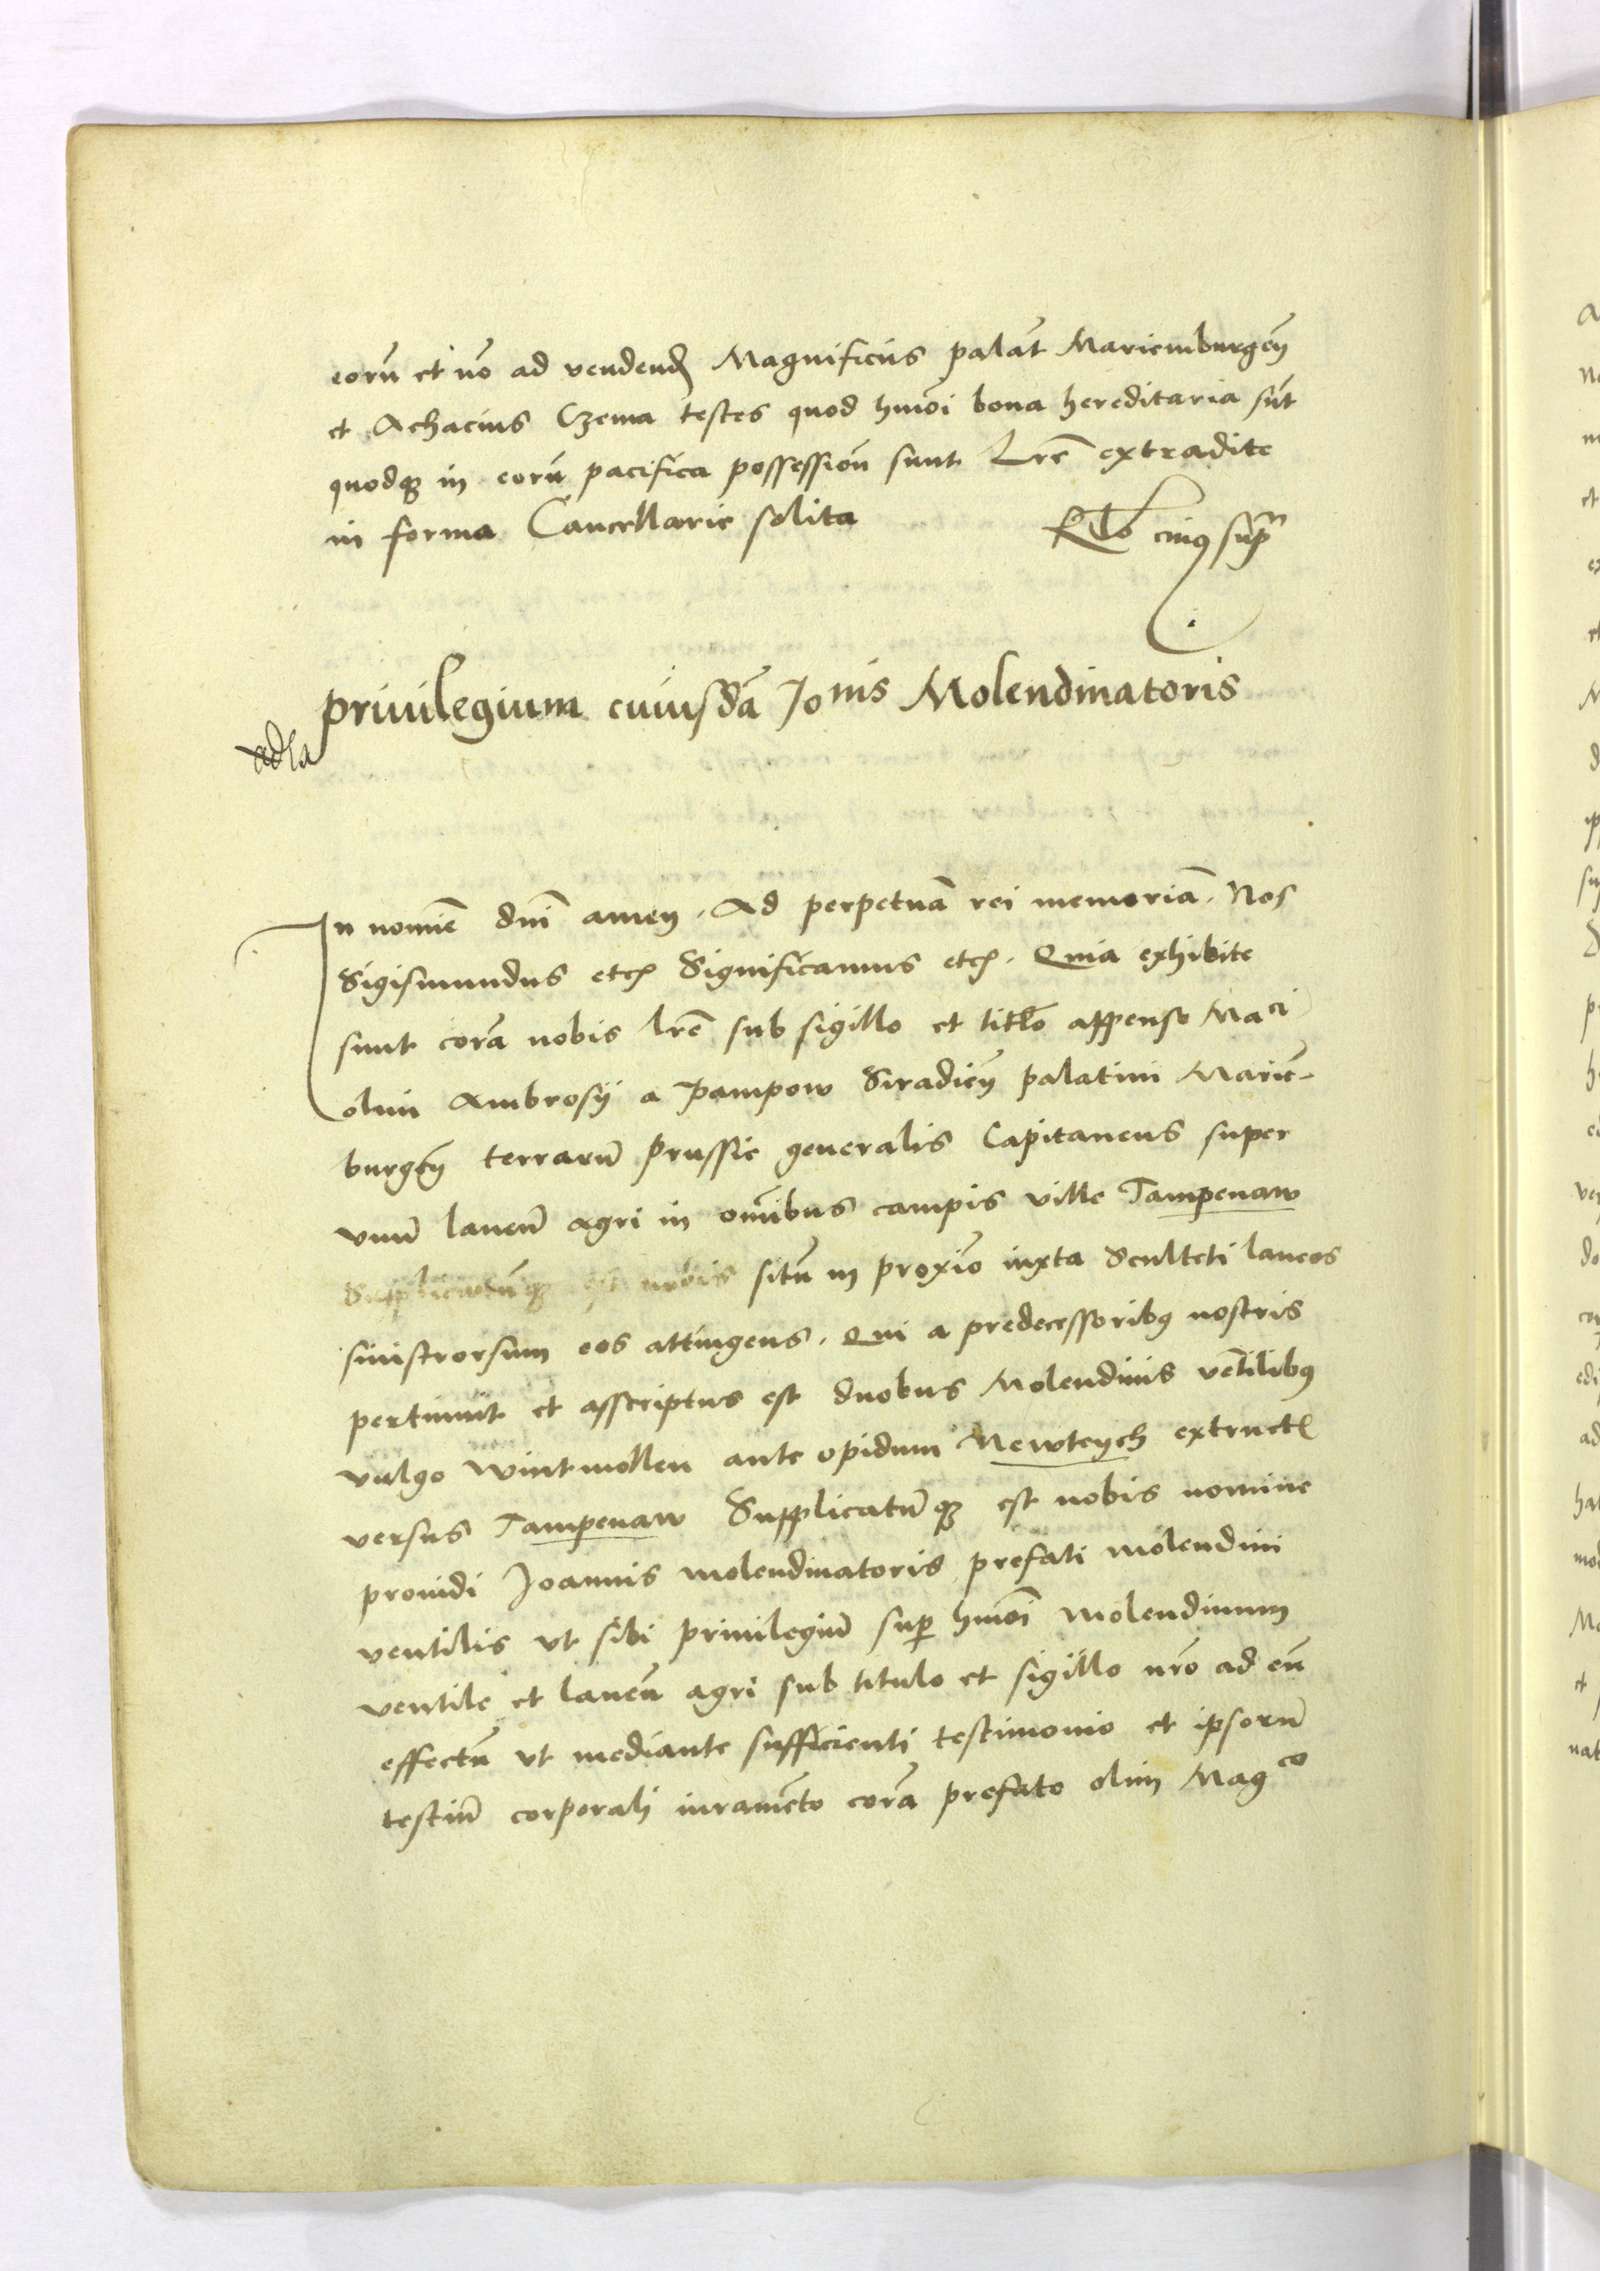 eorū et nō ad vendendꝫ Magnificus palat̄ Mariemburgeñ
et Achacius Czema testes quod hmōi bona hereditaria sūt
quodqꝫ in eorū pacifica possessioū sunt Lr̄e extradite
in forma Cancellarie solita
Rtło cuiꝯ supͣ
priuilegium cuiusdā Joⁿⁱˢ Molendinatoris
In nomiē dnī ameñ. Ad perpetuā rei memoriā. Nos
Sigismundus etcꝫ Significamus etcꝫ. Quia exhibite
sunt corā nobis lr̄e sub sigillo et titło appenso Maci
olim Ambrosij a Pampow Siradieñ palatini Mariē-
burgeñ terrarū Prussie generalis Capitaneus super
vnū laneū agri in omībus campis ville Tampenaw
Supplicatūqꝫ est nobis sitū in proxīo iuxta Sculteti laneos
sinistrorsum eos attingens. Qui a predecessoribꝯ nostris
pertinuit et asscriptus est duobus Molendinis vētilibꝯ
vulgo wintmollen ante opidum Newteych extructꝭ
versus Tampenaw Supplicatūqꝫ est nobis nomine
prouidi Joannis molendinatoris prefati molendini
ventilis vt sibi priuilegiū suꝑ hmōi molendinum
ventile et laneū agri sub titulo et sigillo nr̄o ad eū
effectū vt mediante sufficienti testimonio et ipsorū
testiū corporali iuramēto corā prefato olim Magᶜᵒ